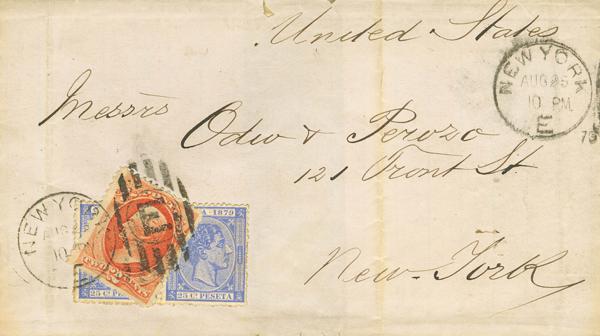 United States
NEW YORK
AUG 25
10 PM
E
79
Messrs
Odio & Perozo
121 Front St
New-York
NEW YO
AUG
10
A 1879
25 CS PESETA
25 CS PESETA